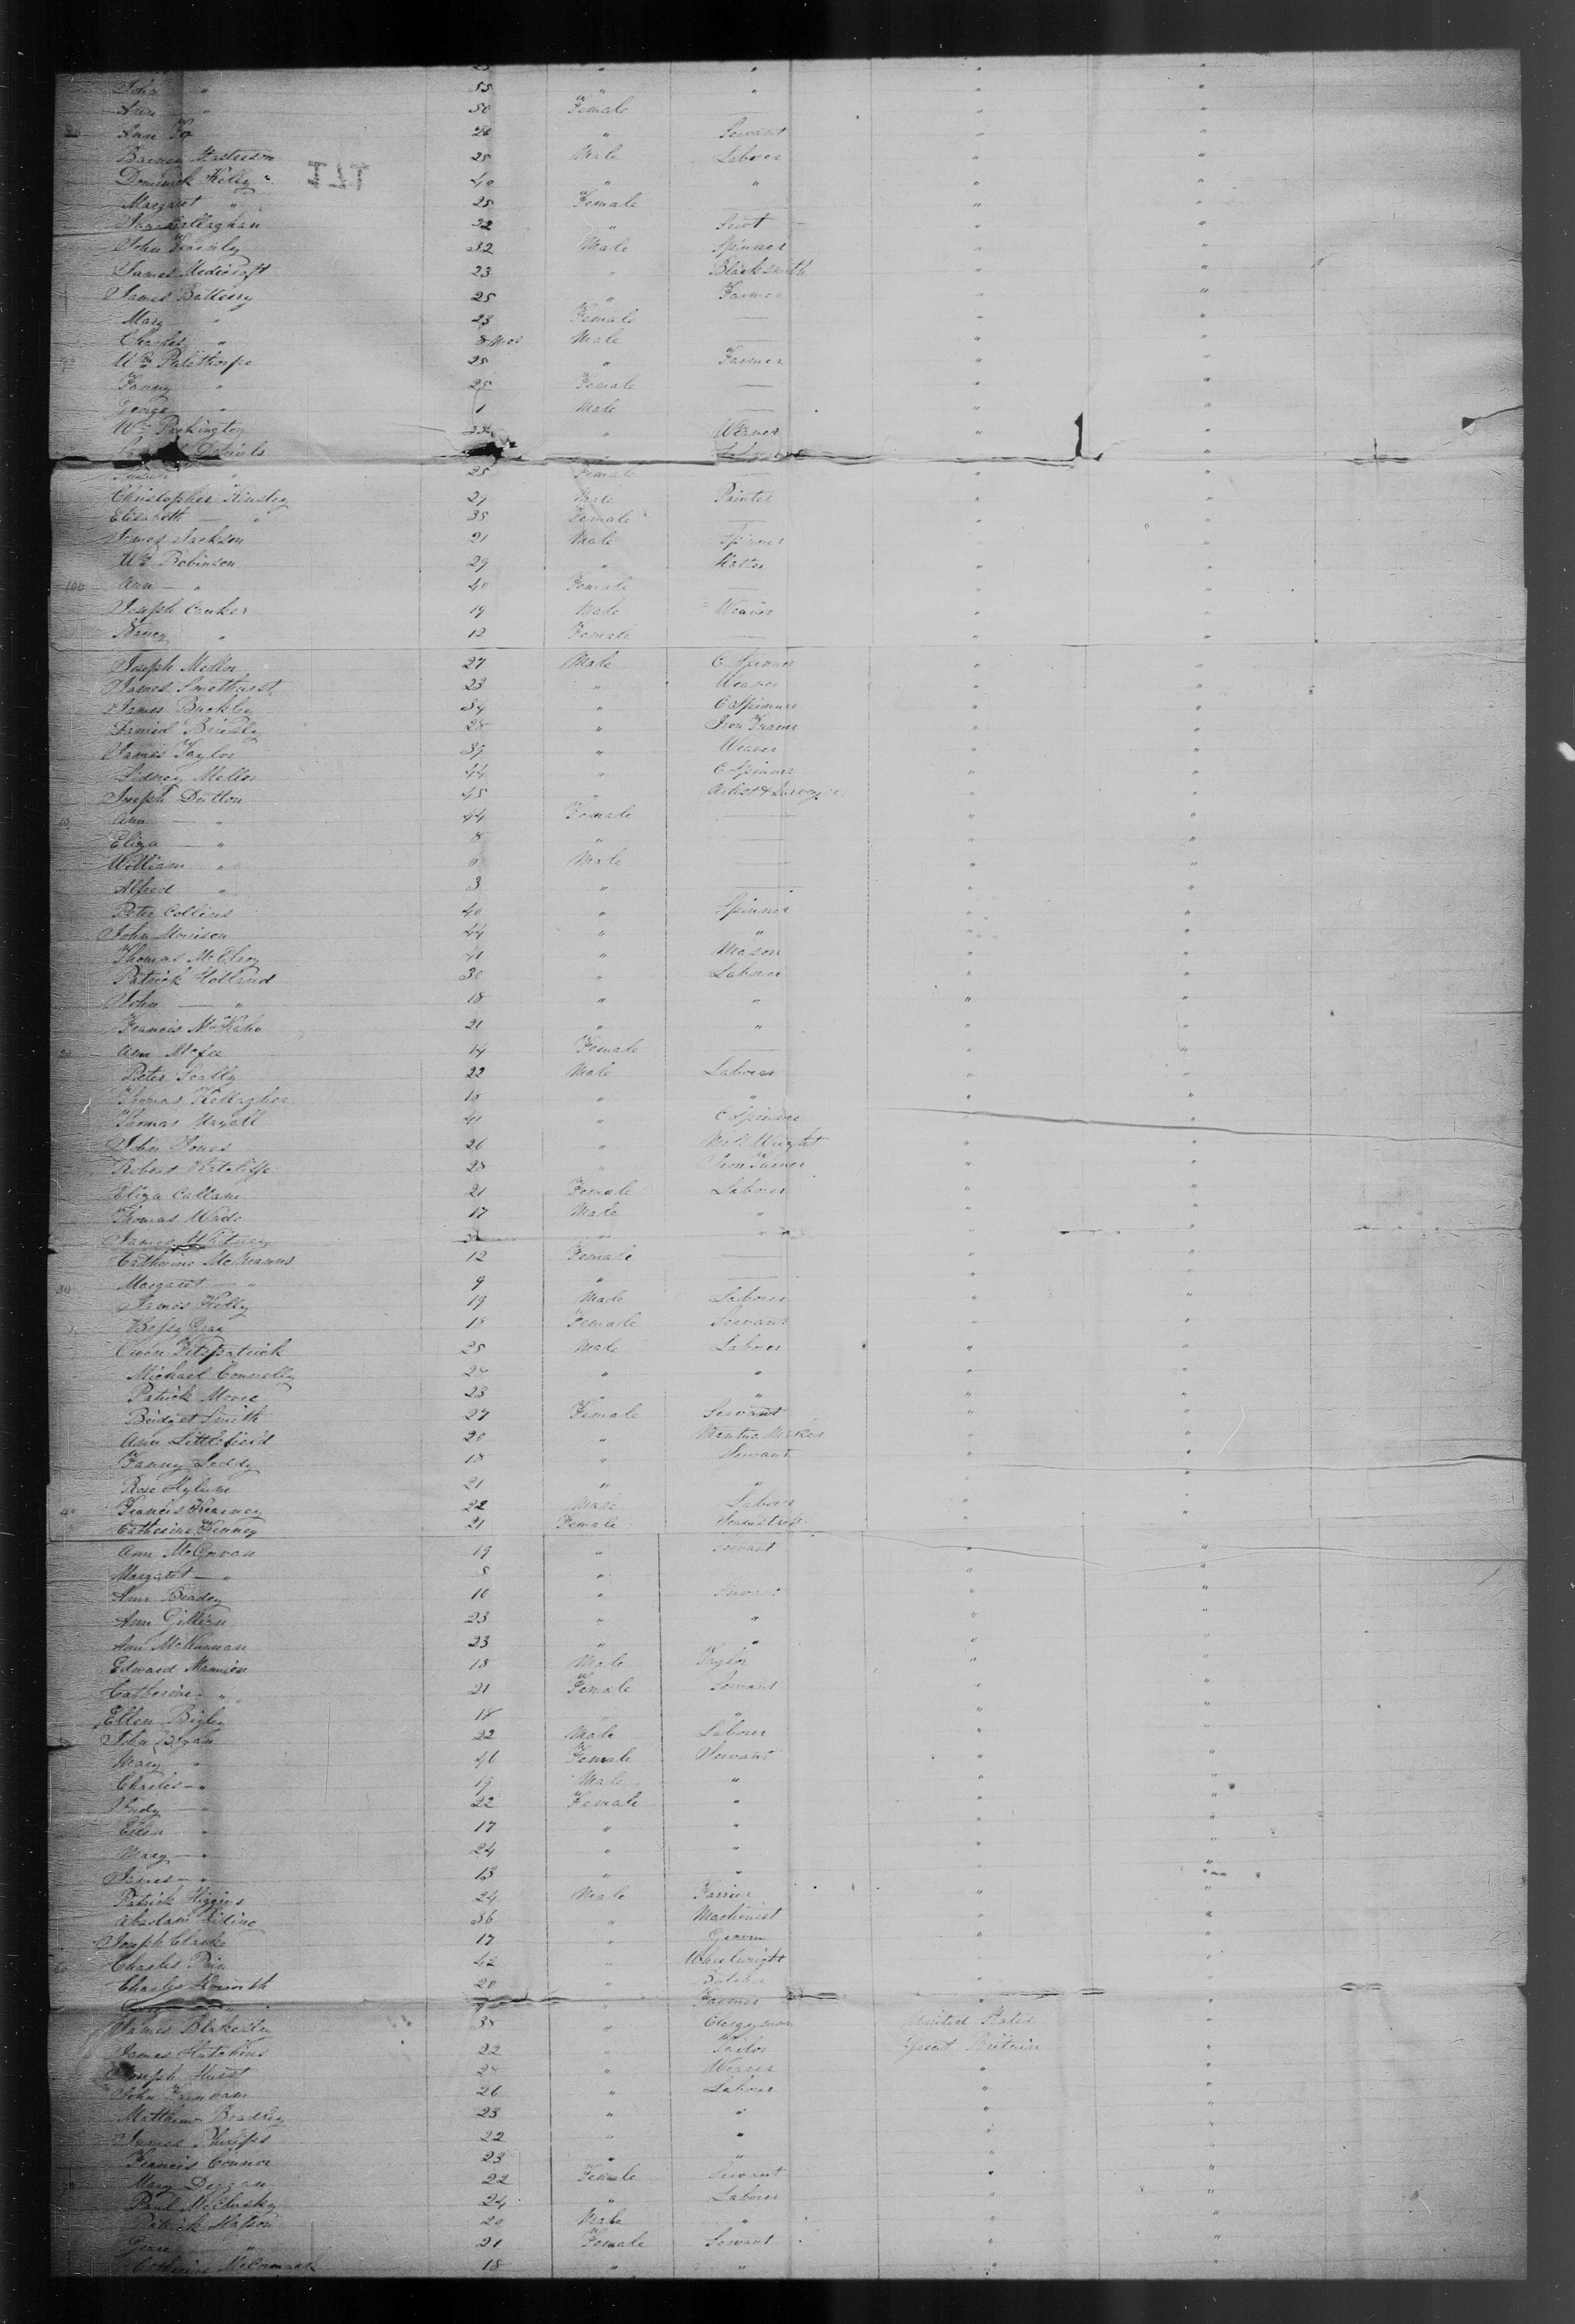 John " 55 " " " "
Ann " 50 Female — " "
Ann 20 " Servant " "
Barney Masterson 25 Male Laborer " "
Dominick Kelly 40 " " " "
Margaret " 25 Female — " "
Callaghan 22 " Servt " "
John 32 Male Spinner " "
James Medicroft 23 " Blacksmith " "
James Battersy 25 " Farmer " "
Mary " 23 Female — " "
Charles " 8 Mos Male — " "
Wm Palethorpe 25 " Farmer " "
Fanny " 25 Female — " "
George " 1 Male — " "
Wm Peckington " Weaver " "
Daniels
" 25 Female " "
Christopher Kinsley 27 Male Painter " "
Elizabeth — " 35 Female — " "
James Jackson 21 Male Spinner " "
Wm Robinson 29 " Hatter " "
100 Ann — " 40 Female — " "
Joseph Canker 19 Male Weaver " "
Nancy " 12 Female — " "
Joseph Mellor 27 Male C Spinner " "
James Smethurst 23 " Weaver " "
James Buckley 34 " C Spinner " "
Daniel Brierly 28 " Iron Turner " "
James Taylor 39 " Weaver " "
Sidney Mellor 44 " C Spinner " "
Joseph Dutton 45 " Artist & Surveyor " "
10 Ann — " 44 Female — " "
Eliza — " 8 " — " "
William " 6 Male — " "
Alfred " 3 " — " "
Peter Collins 40 " Spinner " "
John Morrison 44 " " " "
Thomas McElroy 41 " Mason " "
Patrick Holland 30 " Laborer " "
John — " 18 " " " "
Francis McKabe 21 " " " "
20 Ann McFee 14 Female — " "
Peter Scally 22 Male Laborer " "
Thomas Kellagher 18 " " " "
Thomas Mayall 41 " C Spinner " "
John Jones 26 " Mill Wright " "
Robert Ratcliffe 28 " Iron Turner " "
Eliza Callam 21 Female Laborer " "
Thomas Wade 17 Male " " "
James Whitney " " "
Catherine McManus 12 Female — " "
30 Margaret — " 9 " — " "
James Kelly 19 Male Laborer " "
Betsy Gray 18 Female Servant " "
Owen Fitzpatrick 25 Male Laborer " "
Michael Connelly 24 " " " "
Patrick Moore 23 " " " "
Bridget Smith 27 Female Servant " "
Ann Littlefield 20 " Mantua Maker " "
Fanny Leddy 18 " Servant " "
Rose Hylum 21 " " " "
40 Francis Kearney 22 Male Laborer " "
Catherine Kenney 21 Female Seamstress " "
Ann McGovan 19 " Servant " "
Margaret — " 8 " " "
Ann Bradey 16 " Servant " "
Ann Gilligan 23 " " " "
Ann McKiernan 23 " " " "
Edward Mannion 18 Male Taylor " "
Catherine — " 21 Female Servant " "
Ellen Bigley 18 " " " "
John Bryan 22 Male Laborer " "
Mary — " 46 Female Servant " "
Charles — " 19 Male " " "
Judy — " 22 Female " " "
Ellen " 17 " " " "
Mary — " 24 " " " "
James — " 13 " " " "
Patrick Higgins 24 Male Farrier " "
Absolam Riding 36 " Machinist " "
Joseph Clarke 17 " Groom " "
Charles Pain 42 " Wheelwright " "
Charles Howorth 20 " Butcher " "
" Farmer " "
James Blakesley 38 " Clergyman United States "
James Hutchins 22 " Sailor Great Britain "
Joseph Hurst 24 " Weaver " "
John Farnham 26 " Laborer " "
Matthew Bradley 23 " " " "
James Phillips 22 " " " "
Francis Connor 23 " " " "
Mary Degnan 22 Female Servant " "
Paul McClusky 24 " Laborer " "
Patrick Watson 20 Male " " "
" 21 Female Servant " "
Catherine McCormack 18 " " " "